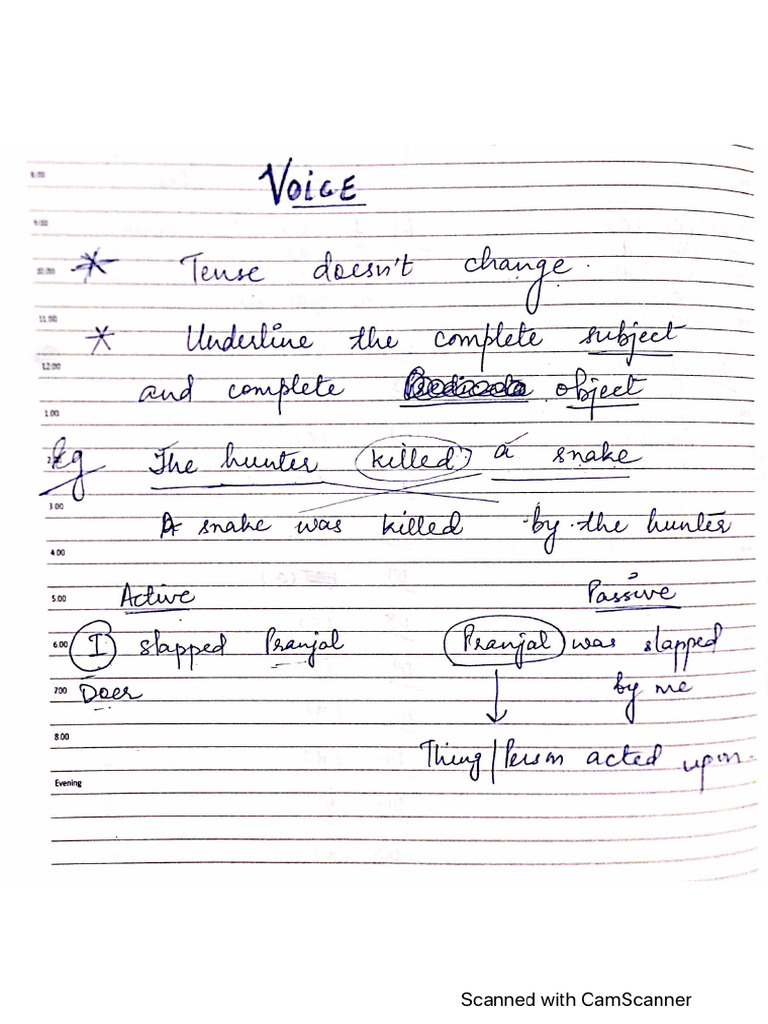 8:00
VOICE
9:00
10:00 * Tense doesn't change.
11:00
* Underline the complete subject
12:00
and complete object
1:00
Eg The hunter killed a snake
3:00
A snake was killed by the hunter
4:00
5:00 Active Passive
6:00 I slapped Pranjal Pranjal was slapped
7:00 Doer by me
8:00
Thing/Person acted upon.
Evening
Scanned with CamScanner